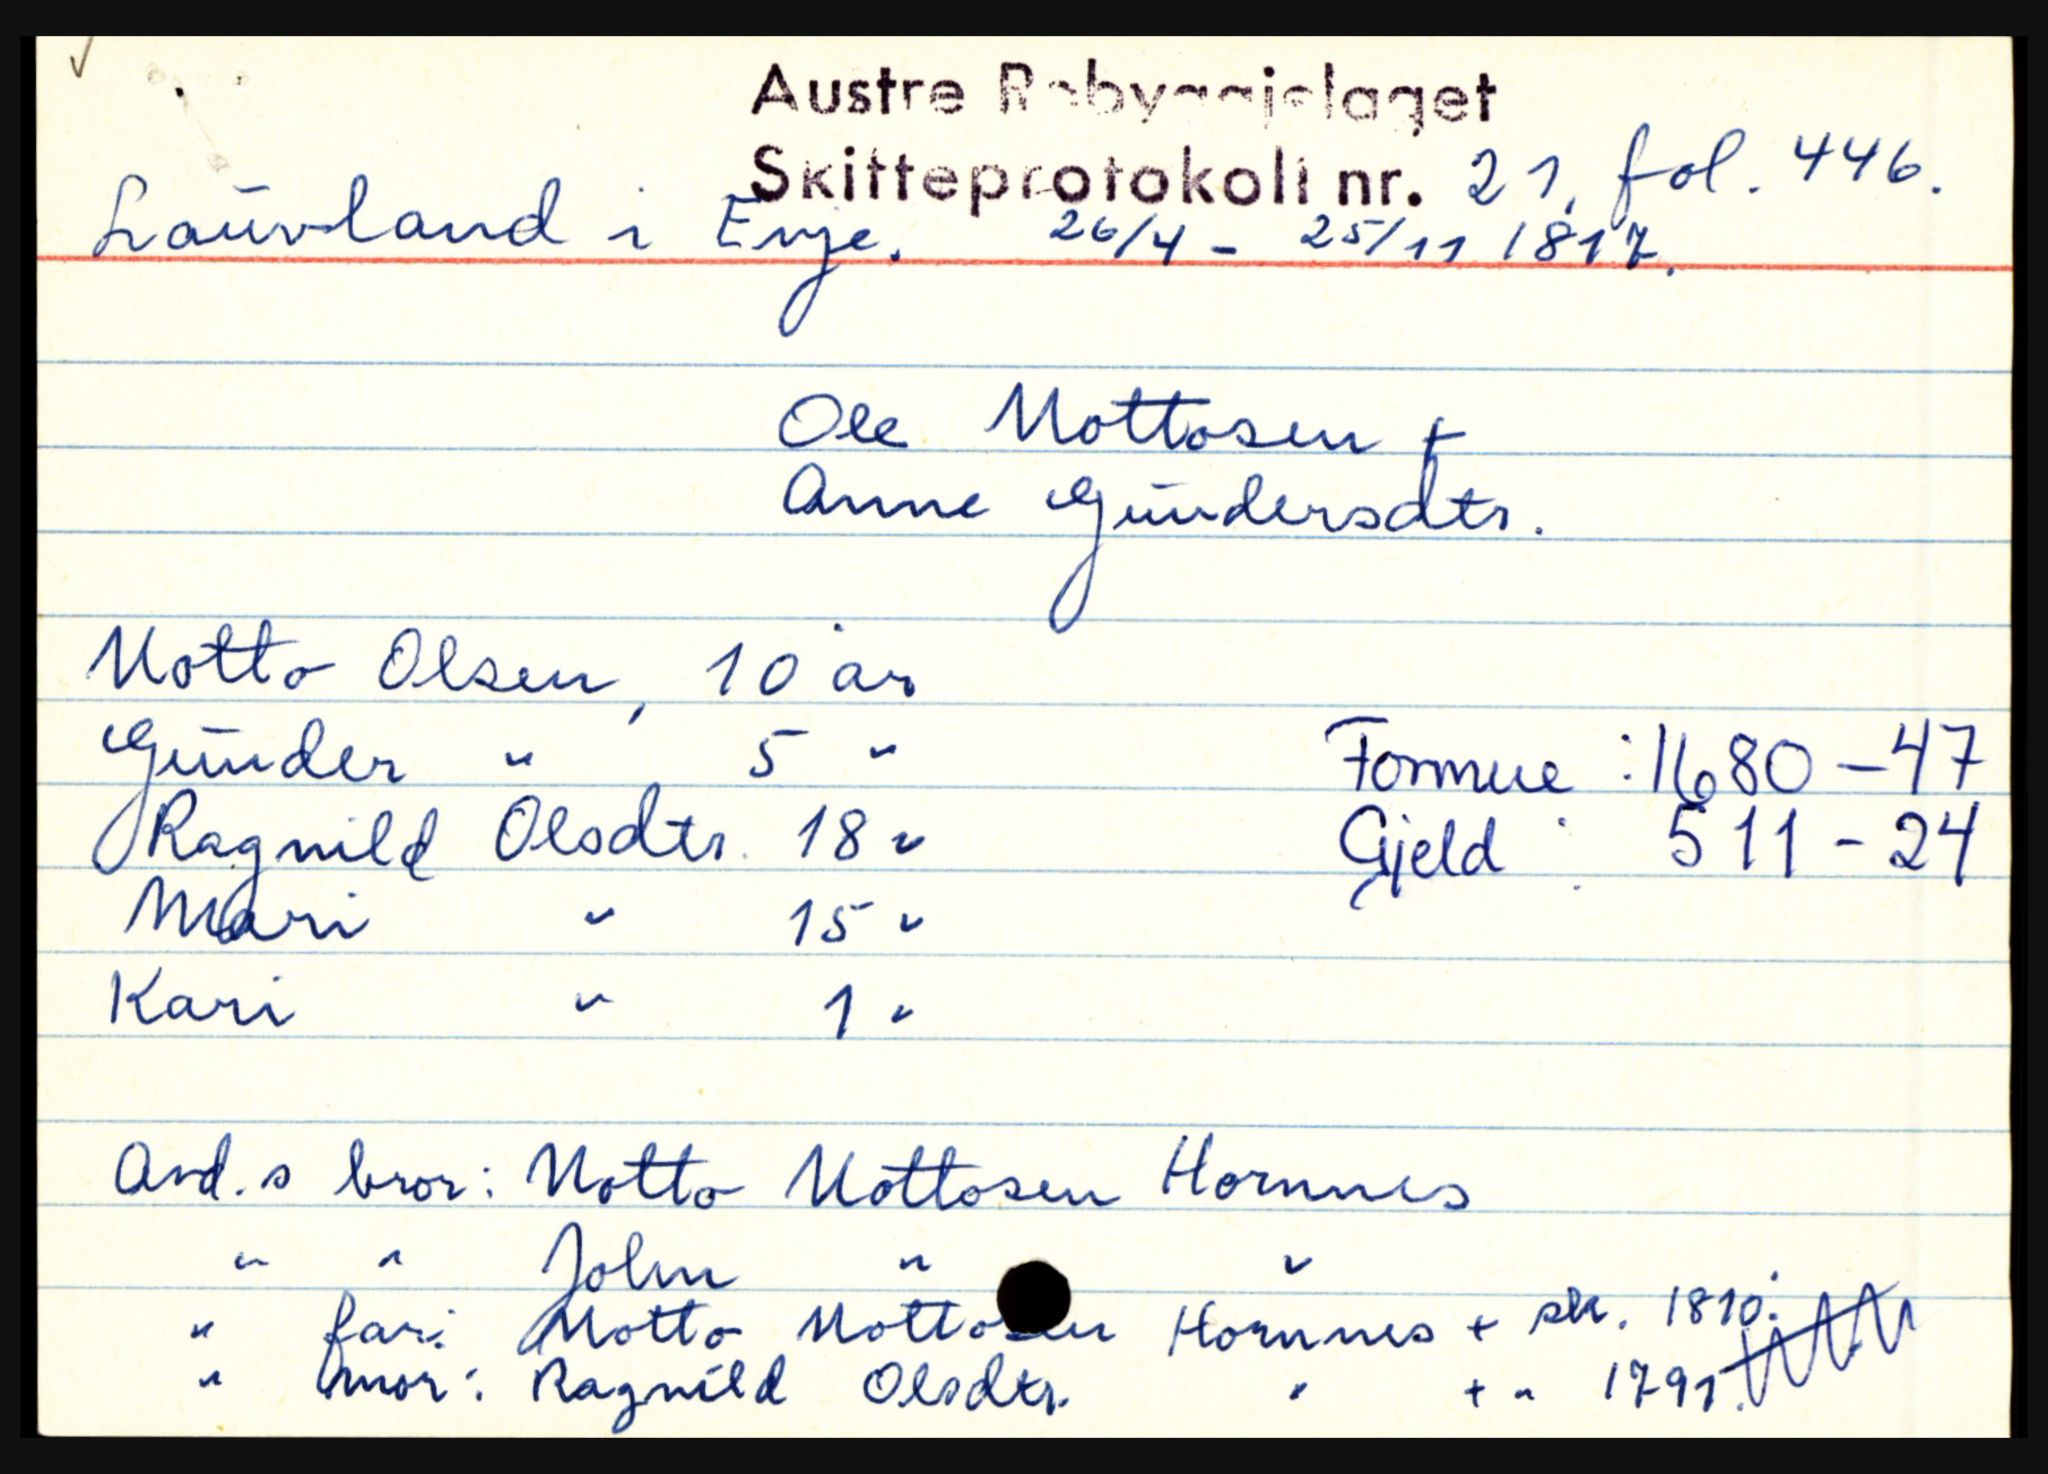 Austre Robyggjelaget
Skifteprotokoll nr. 21, fol. 446.
Lauvland i Evje. 26/4 - 25/11 1817.
Ole Nottosen +
Anne Gundersdtr.
Notto Olsen, 10 år
Gunder " 5 "
Formue : 1680 - 47
Ragnild Olsdtr. 18 "
Gjeld : 511 - 24
Mari " 15 "
Kari " 1 "
Avd.s bror: Notto Nottosen Hornnes
" " John " "
" far: Notto Nottosen Hornnes + sk. 1810.
" mor: Ragnild Olsdtr. " + " 1791.